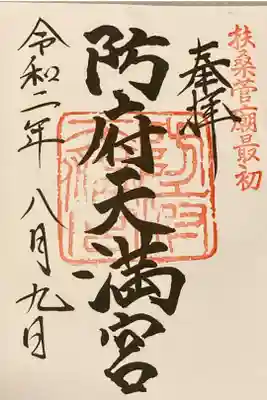 扶桑菅廟最初
奉拝
防府天満宮
令和二年八月九日